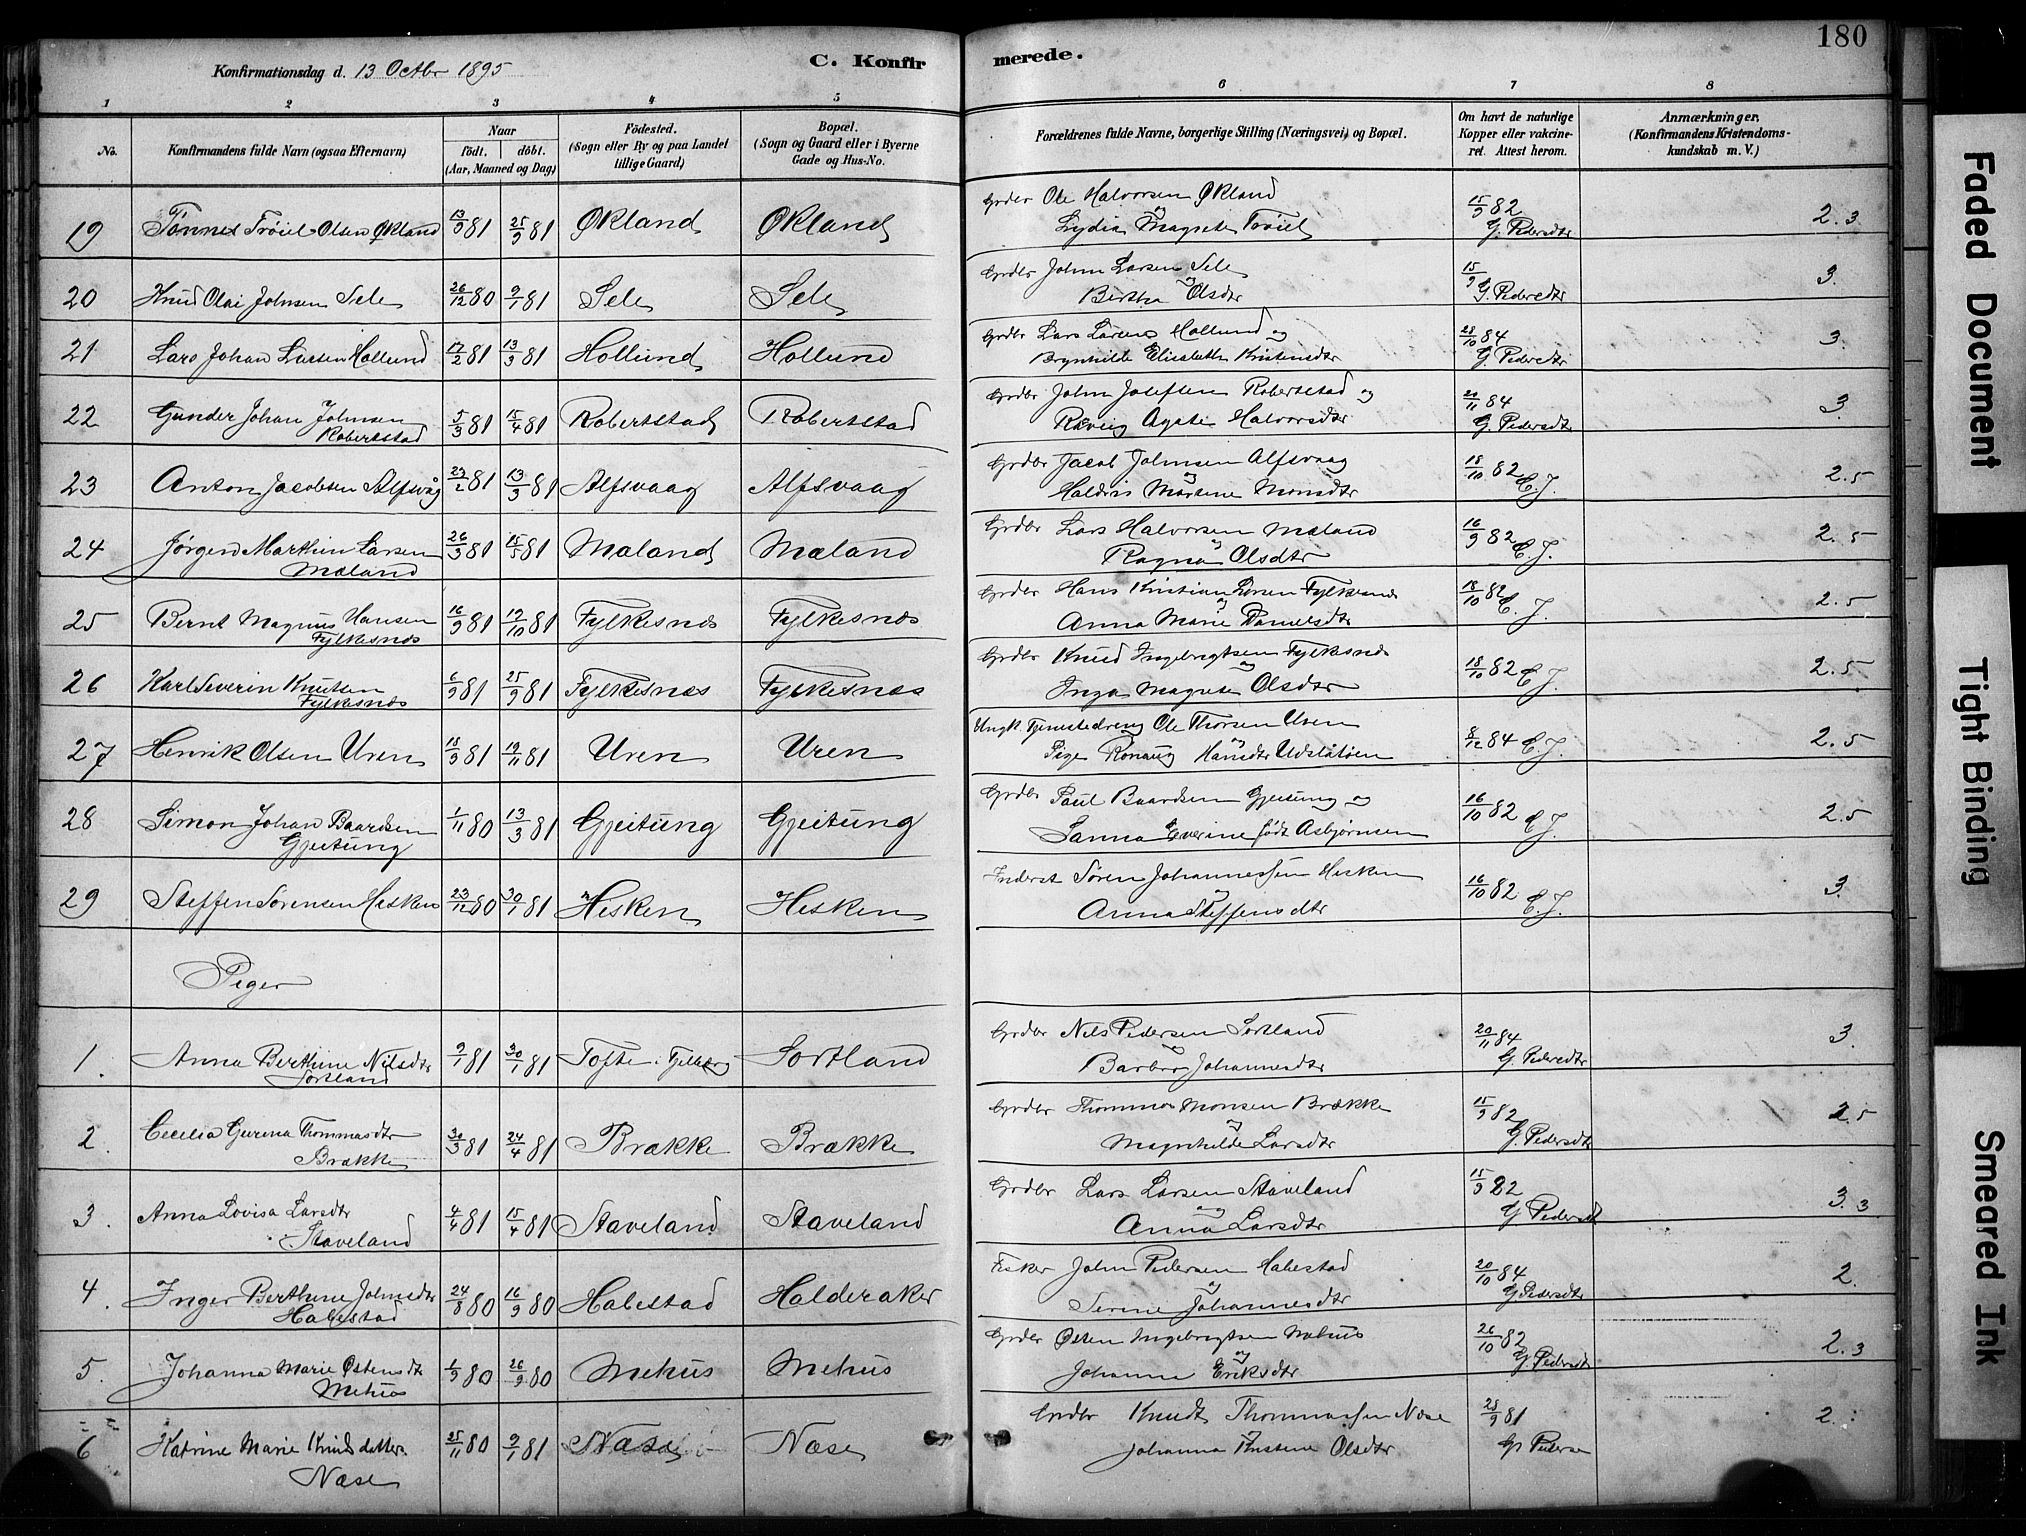 180
Konfirmationsdag d. 13 Octbr 1895
C. Konfirmerede.
1 2 3 4 5 6 7 8
No.
Konfirmandens fulde Navn (ogsaa Efternavn)
Naar
födt. döbt.
(Aar, Maaned og Dag)
Födested.
(Sogn eller By og paa Landet
tillige Gaard)
Bopæl.
(Sogn og Gaard eller i Byerne
Gade og Hus-No.
Forældrenes fulde Navne, borgerlige Stilling (Næringsvei) og Bopæl.
Om havt de naturlige
Kopper eller vakcineret.
Attest herom.
Anmærkninger.
(Konfirmandens Kristendomskundskab
m. V.)
19 Tönnes Tröiel Olsen Økland 13/9 81 25/9 81 Økland Økland Grdbr Ole Halvorsen Økland 15/9 82 2.3
og
Lydia Magrete Tröiel G. Pedersdtr
20 Knud Olai Johnsen Sele 26/12 80 9/1 81 Sele Sele Grdbr John Larsen Sele 15/9 3.
og
Birtha Olsdtr G. Pedersdtr
21 Lars Johan Larsen Hollund 17/2 81 13/3 81 Hollund Hollund Grdbr Lars Larsens Hollund og 28/10 84 3.
Brynhilde Elisabeth Kristensdtr G. Pedersdtr
22 Gunder Johan Johnsen 5/3 81 15/4 81 Robertstad Robertstad Grdbr John Joseffsen Robertstad og 20/11 84 3.
Robertstad Agate Halvorsdtr G. Pedersdtr
23 Anton Jacobsen Alfsvåg 27/2 81 13/3 81 Alfsvaag Alfsvaag Grdbr Jacob Johnsen Alfsvaag 18/10 82 C. J. 2.5
og
Martine Monsdtr
24 Jörgen Marthin Larsen 26/3 81 15/5 81 Mæland Mæland Grdbr Lars Halvorsen Mæland 16/9 82 C. J. 2.5
og
Mæland Ragna Olsdtr
25 Bernt Magnus Hansen 16/9 81 19/10 81 Fylkesnæs Fylkesnæs Grdbr Hans Kristian Larsen Fylkesnæs 18/10 82 C. J. 2.5
og
Fylkesnæs Anna Marie Danielsdtr
26 Karl Severin Knutsen 6/9 81 25/9 81 Fylkesnæs Fylkesnæs Grdbr Knud Ingebrigtsen Fylkesnæs 18/10 82 C. J. 2.5
og
Fylkesnæs Inga Magrete Olsdtr
27 Henrik Olsen Uren 18/9 81 19/11 81 Uren Uren Ungk. Tjenestedreng Ole Thorsen Uren 8/12 84 C. J. 2.5
og
Pige Ronaug Hansdtr
28 Simon Johan Baardsen 1/11 80 13/3 81 Gjeitung Gjeitung Grdbr Poul Baardsen Gjeitung og 16/10 82 C. J. 2.5
Gjeitung Sanna Everine födt Asbjørnsen
29 Steffen Sörensen Hisken 23/12 80 30/1 81 Hisken Hisken Inderst Sören Johannessen Hisken 16/10 82 C. J. 3.
og
Anna Steffensdtr
Piger
1. Anna Berthine Nilsdtr 9/1 81 30/1 81 Tofte i Fjelberg Sortland Grdbr Nils Pedersen Sortland 20/11 84 3.
og
Sortland Barbro Johannesdtr G. Pedersdtr
2. Cecilia Gurina Thommasdtr 30/3 81 24/4 81 Brække Brække Grdbr Thommas Monsen Brække 15/9 82 2.5
og
Brække Magnhilde Larsdtr G. Pedersdtr
3. Anna Lovisa Larsdtr 4/4 81 15/4 81 Staveland Staveland Grdbr Lars Larsen Staveland 15/9 82 3.3
og
Staveland Anna Larsdtr G. Pedersdtr
4. Inger Berthine Johnsdtr 24/8 80 16/9 80 Habestad Halderaker Fisker John Pedersen Habestad 20/10 84 2.
og
Habestad Serine Johannesdtr G. Pedersdtr
5. Johanna Marie Østensdtr 1/9 80 26/9 80 Mehus Mehus Grdbr Østen Ingebrigtsen Mehus 26/10 82 2.3
og
Mehus Johanna Eriksdtr G. Pedersdtr
6 Katrine Marie Knudsdatter 25/11 80 9/1 81 Næse Næse Grdbr Knudt Thommassen Næse 28/9 81 2.
Næse Johanna Kristine Olsdtr G. Peders
Faded Document
Tight Binding
Smeared Ink